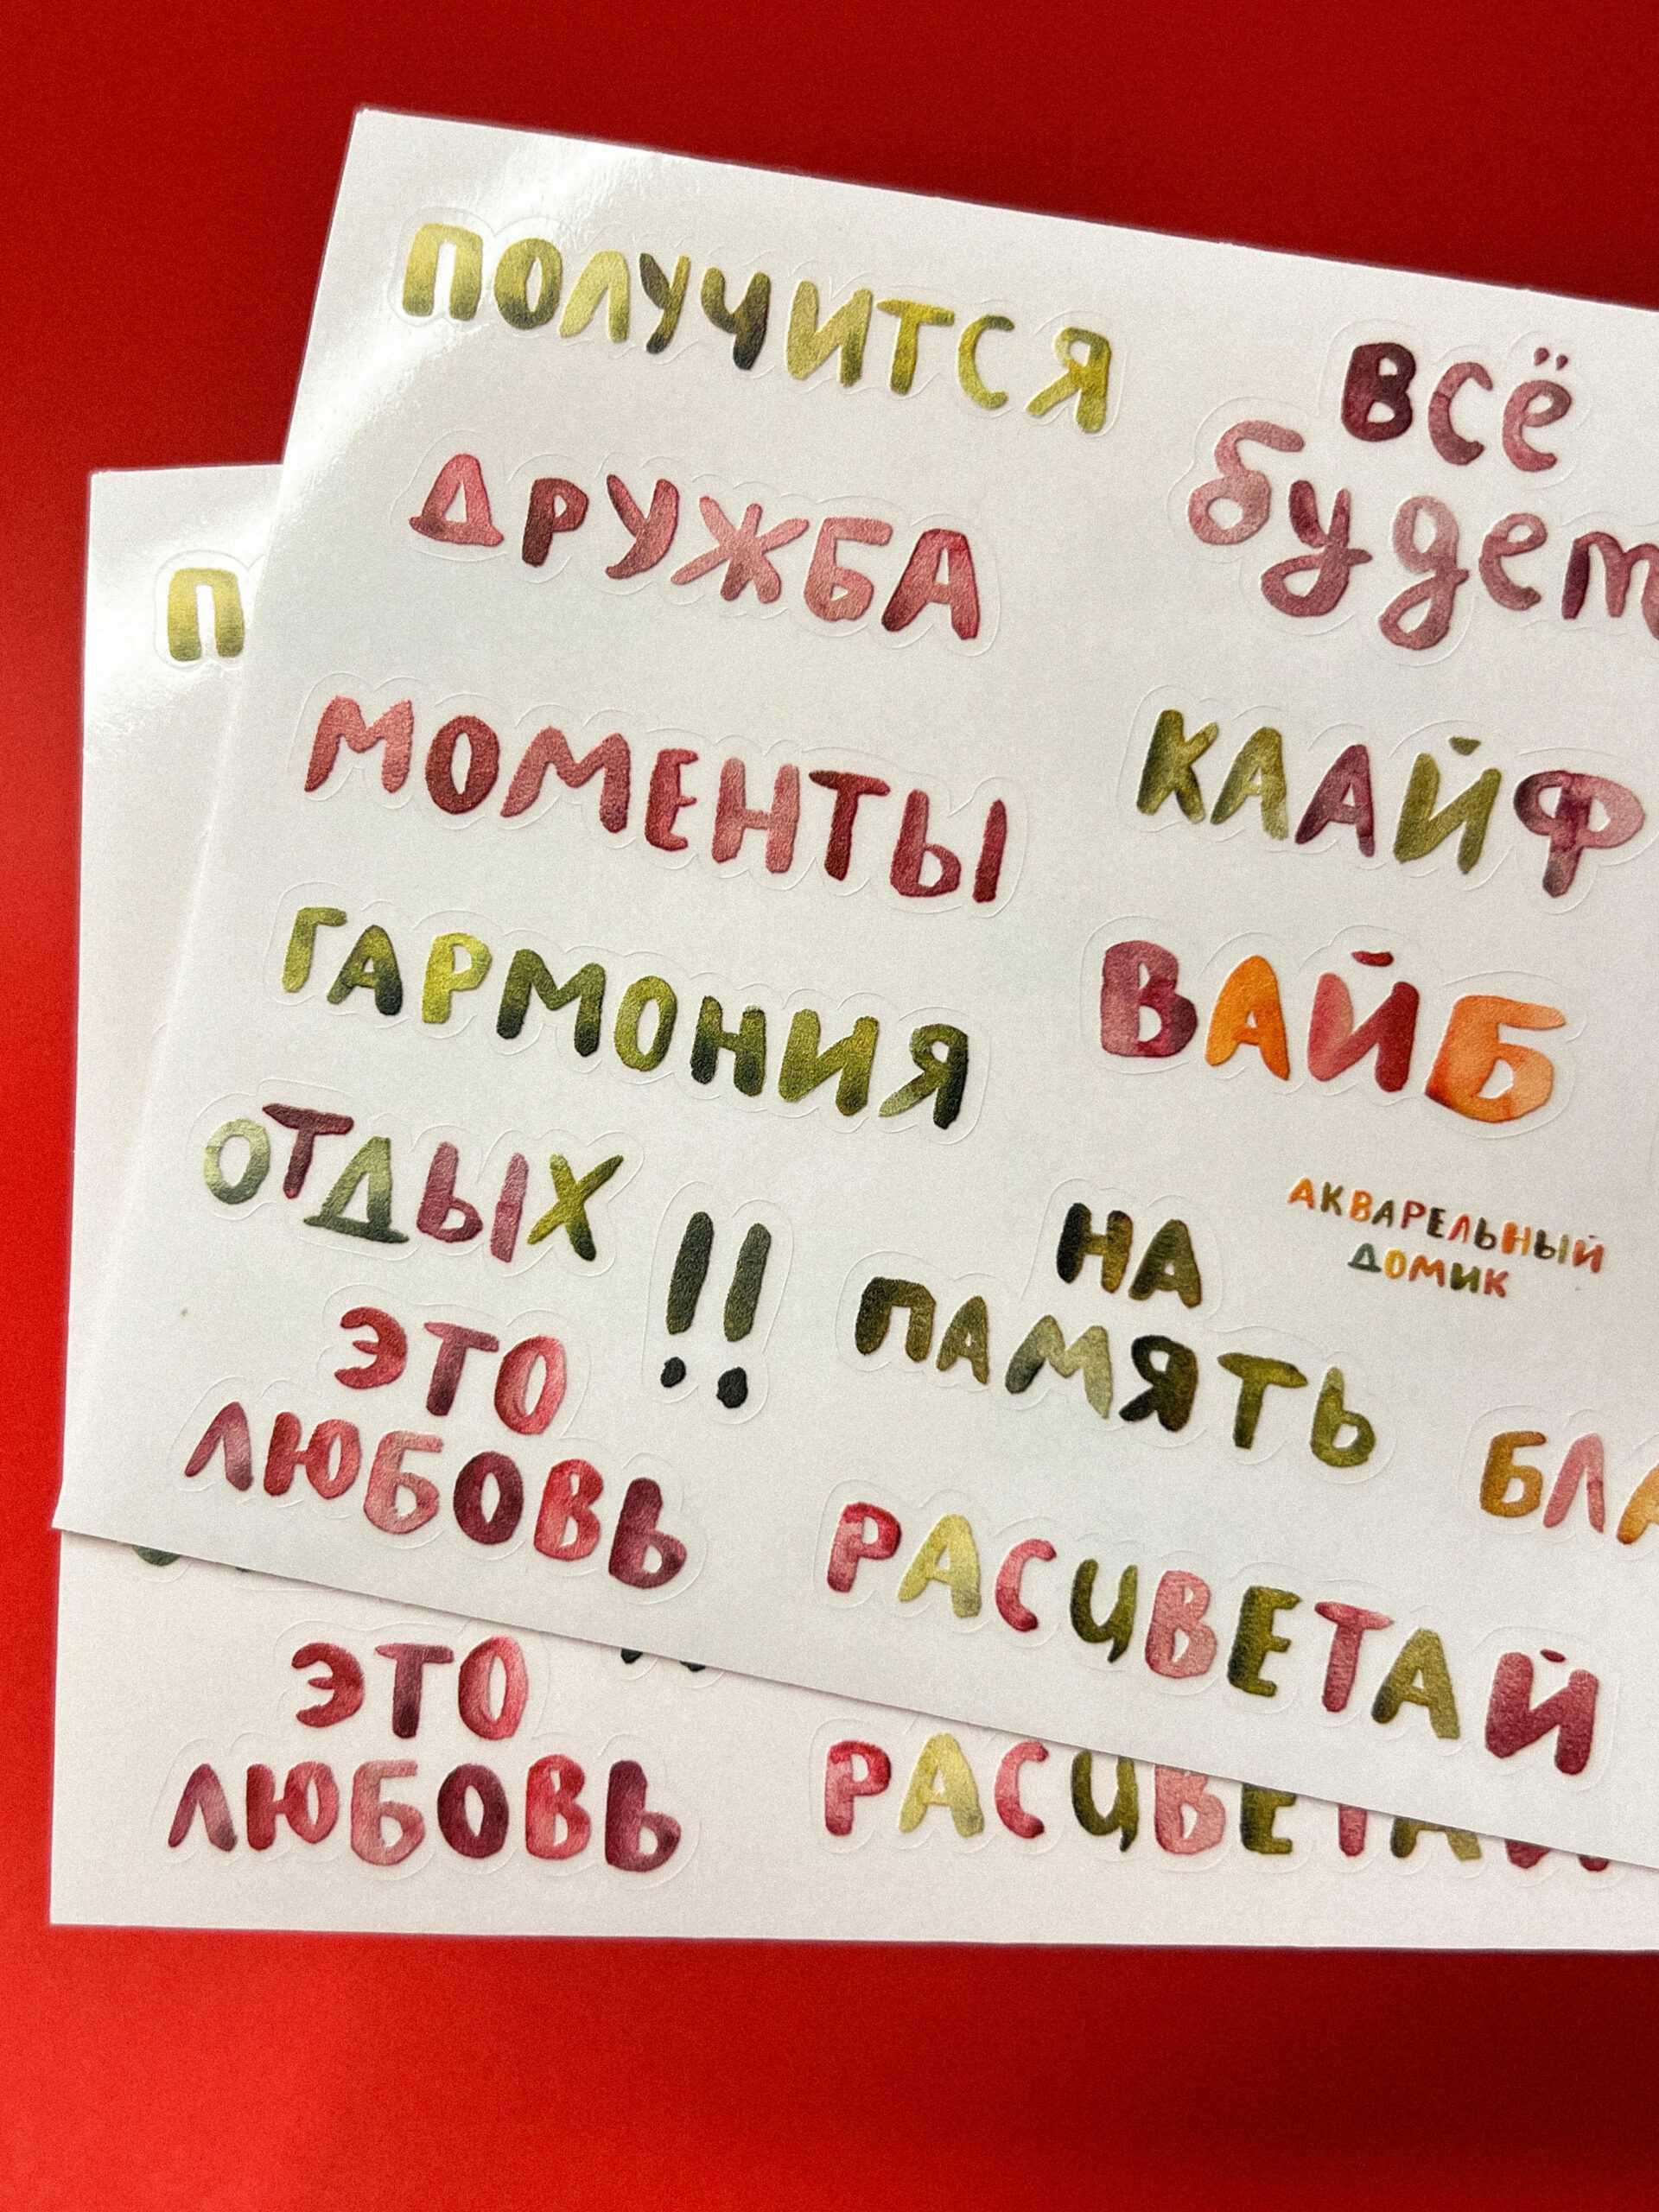 ПОЛУЧИТСЯ
ВСЁ
будет
ДРУЖБА
МОМЕНТЫ
КААЙФ
ГАРМОНИЯ
ВАЙБ
ОТДЫХ
!!
НА
ПАМЯТЬ
АКВАРЕЛЬНЫЙ
ДОМИК
ЭТО
ЛЮБОВЬ
РАСЦВЕТАЙ
ЭТО
ЛЮБОВЬ
РАСЦВЕТАЙ